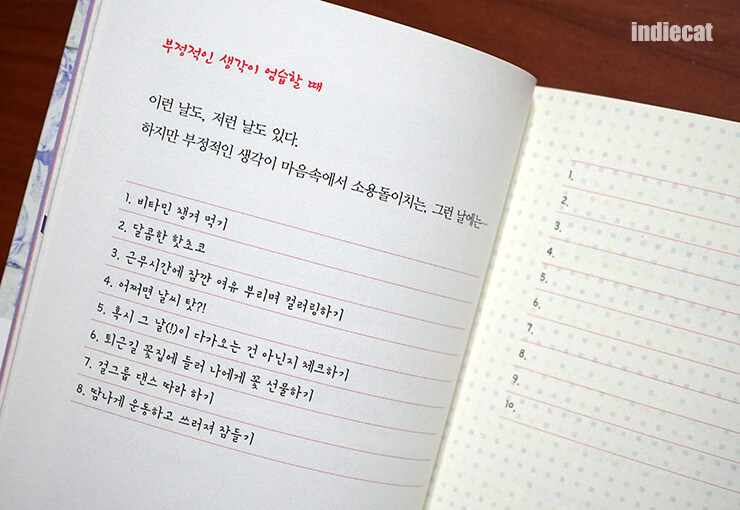 indiecat
부정적인 생각이 엄습할 때
이런 날도, 저런 날도 있다.
하지만 부정적인 생각이 마음속에서 소용돌이치는, 그런 날에는…
1. 비타민 챙겨 먹기
2. 달콤한 핫초코
3. 근무시간에 잠깐 여유 부리며 컬러링하기
4. 어쩌면 날씨 탓?!
5. 혹시 그 날(!)이 다가오는 건 아닌지 체크하기
6. 퇴근길 꽃집에 들러 나에게 꽃 선물하기
7. 걸그룹 댄스 따라 하기
8. 땀나게 운동하고 쓰러져 잠들기
1.
2.
3.
4.
5.
6.
7.
8.
9.
10.